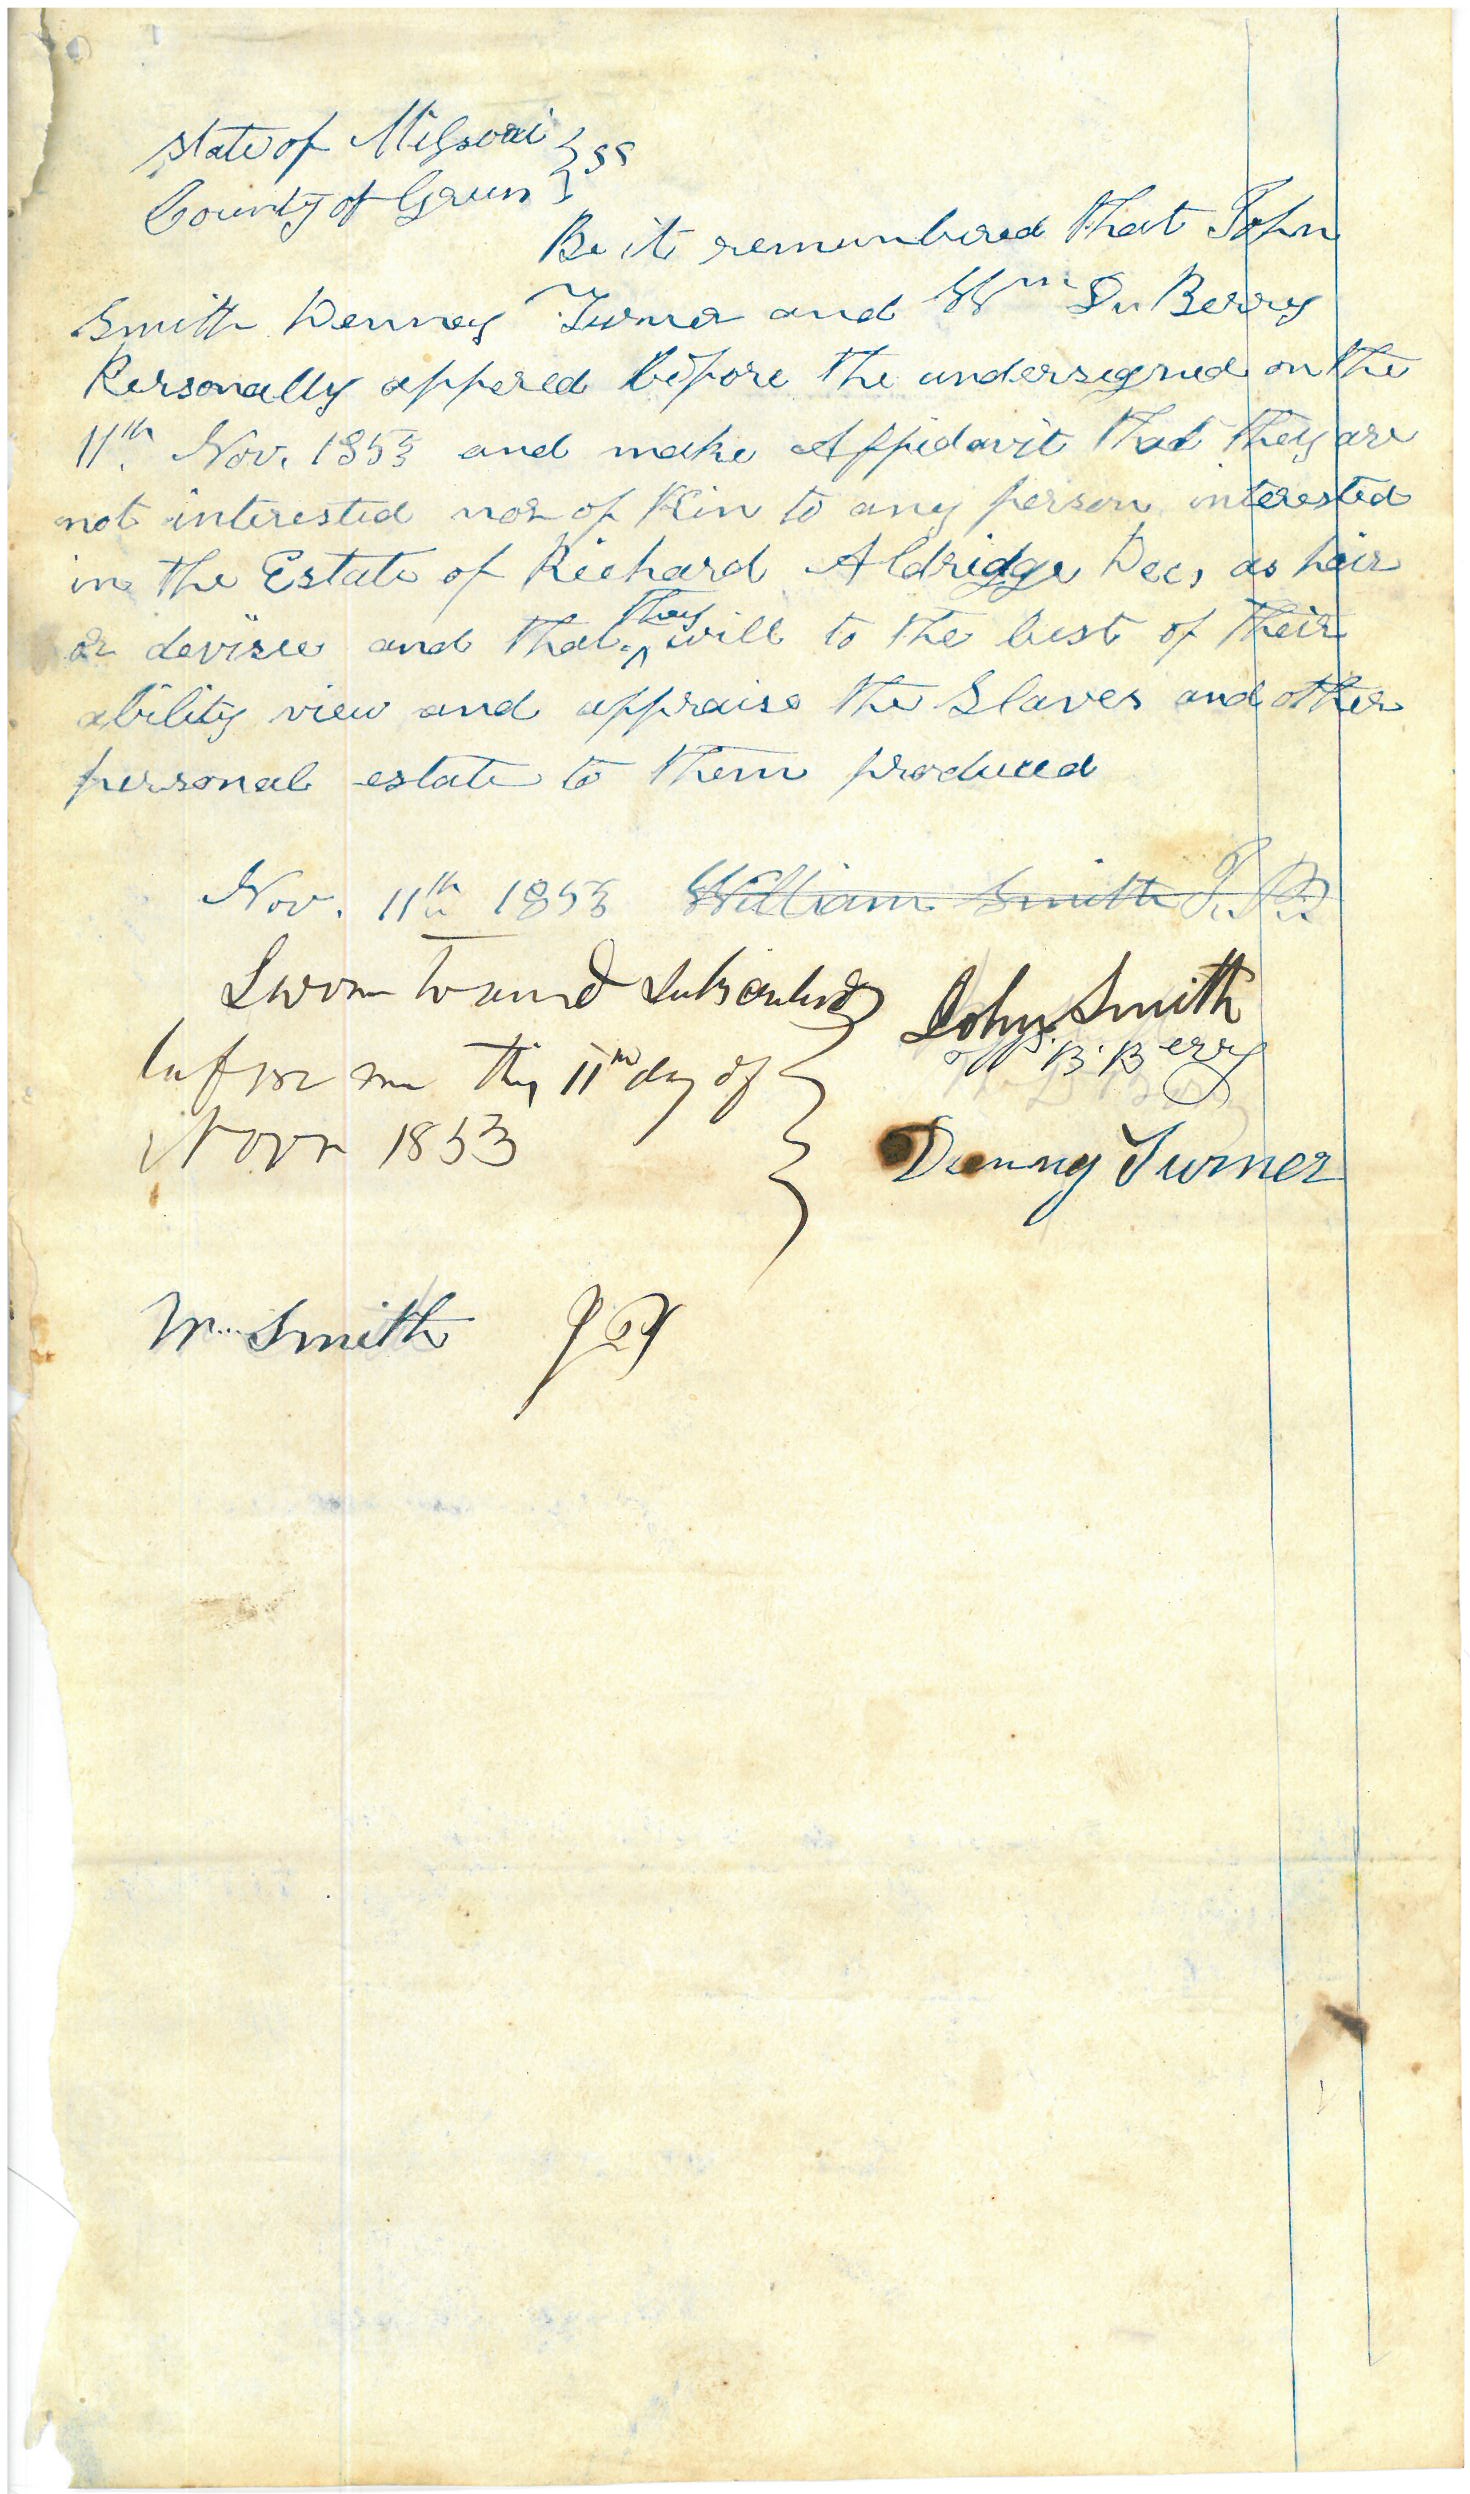 State of Missouri } ss
County of Green }
Be it remembered that John
Smith Denney Turner and Wm Du Berry
Personally appered before the undersigned on the
11th Nov. 1853 and make Affidavit that they are
not interested nor of Kin to any person interested
in the Estate of Richard Aldridge Dec, as heir
or devisee and that they will to the best of their
ability view and appraise the Slaves and other
personal estate to them produced
Nov. 11th 1853 William Smith J. P.
Sworn to and Subscribed } John Smith
before me this 11th day of B. Berry
Novr 1853 Denny Turner
Wm Smith JP